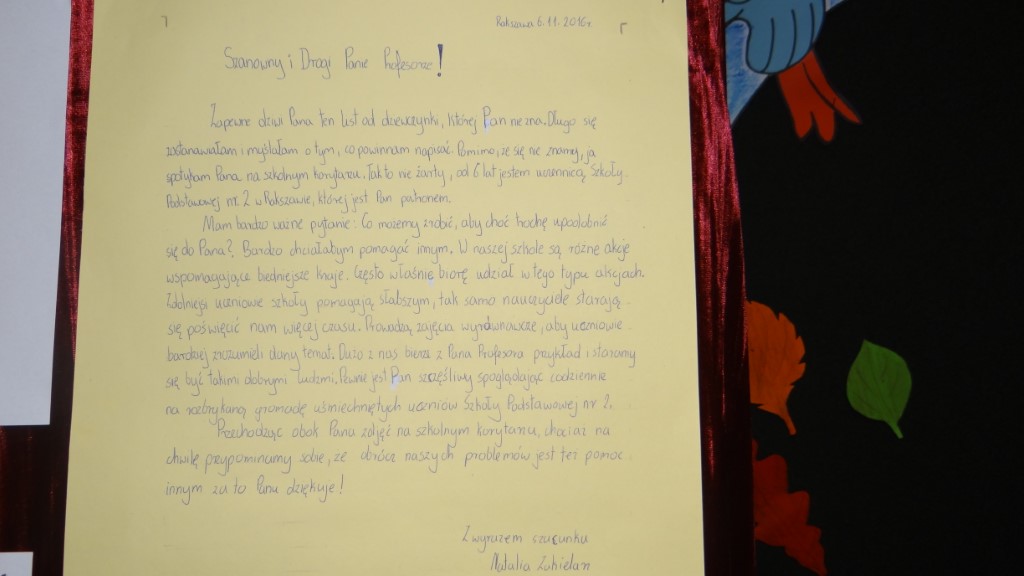 Rakszawa 6.11.2016r
Szanowny i Drogi Panie Profesorze!
Zapewne dziwi Pana ten list od dziewczynki, której Pan nie zna. Długo się
zastanawiałam i myślałam o tym, co powinnam napisać. Pomimo, że się nie znamy, ja
spotykam Pana na szkolnym korytarzu. Tak to nie żarty, od 6 lat jestem uczennicą Szkoły
Podstawowej nr. 2 w Rakszawie, której jest Pan patronem.
Mam bardzo ważne pytanie: Co możemy zrobić, aby choć trochę upodobnić
się do Pana? Bardzo chciałabym pomagać innym. W naszej szkole są różne akcje
wspomagające biedniejsze kraje. Często właśnie biorę udział w tego typu akcjach.
Zdolniejsi uczniowie szkoły pomagają słabszym, tak samo nauczyciele starają
się poświęcić nam więcej czasu. Prowadzą zajęcia wyrównawcze, aby uczniowie
bardziej zrozumieli dany temat. Dużo z nas bierze z Pana Profesora przykład i staramy
się być takimi dobrymi ludźmi. Pewnie jest Pan szczęśliwy spoglądając codziennie
na rozbrykaną gromadę uśmiechniętych uczniów Szkoły Podstawowej nr 2.
Przechodząc obok Pana zdjęć na szkolnym korytarzu, chociaż na
chwilę przypominamy sobie, że oprócz naszych problemów jest też pomoc
innym za to Panu dziękuje!
Z wyrazem szacunku
Natalia